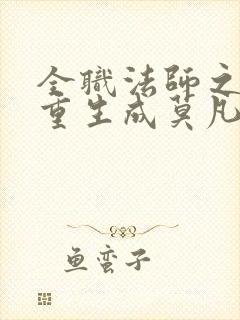 全職法師之
重生成莫凡
鱼蛮子